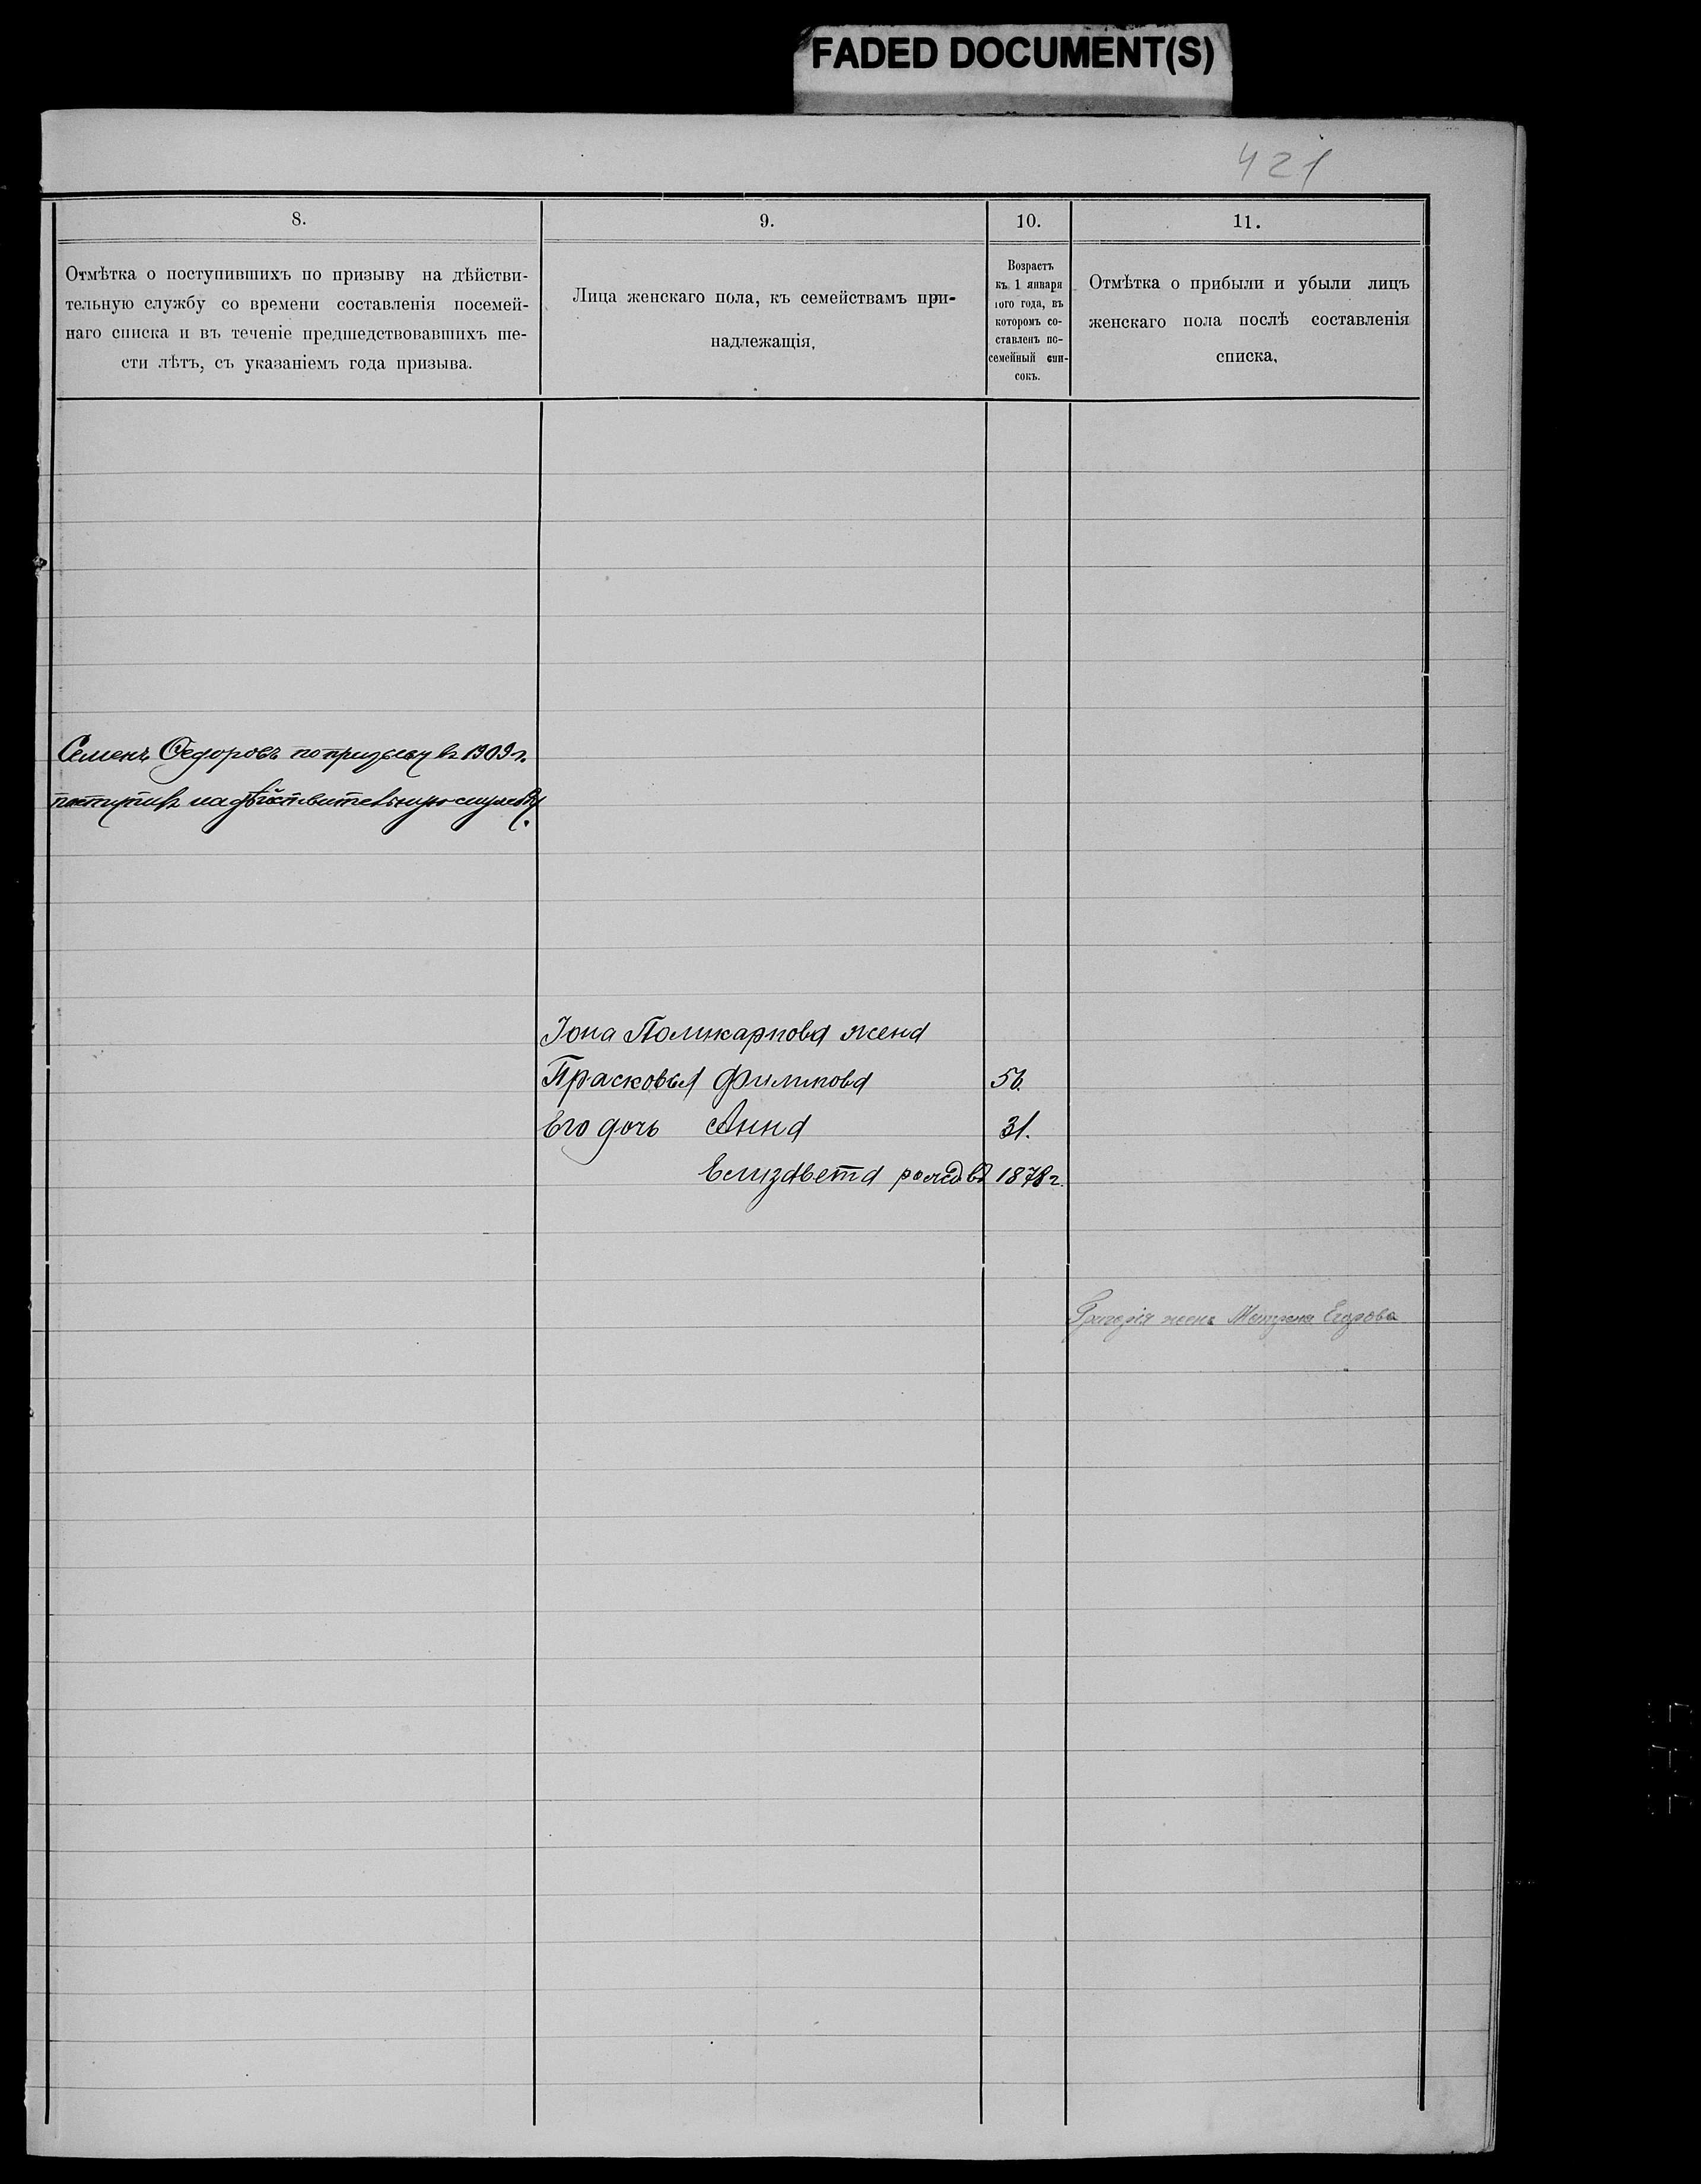 FADED DOCUMENT(S)
421
8.
Отмѣтка о поступившихъ по призыву на дѣйстви-
тельную службу со времени составленія посемей-
наго списка и въ теченіе предшедствовавшихъ ше-
сти лѣтъ, съ указаніемъ года призыва.
9.
Лица женскаго пола, къ семействамъ при-
надлежащія,
10.
Возрастъ
къ 1 января
того года, въ
которомъ со-
ставленъ по-
семейный спи-
сокъ.
11.
Отмѣтка о прибыли и убыли лицъ
женскаго пола послѣ составленія
списка,
Семенъ Федоровъ по призыву въ 1909 г.
поступилъ на дѣйствительную службу.
Iона Поликарпова жена
Прасковья Филипова 56.
Его дочь Анна 31.
Елизавета рожд. въ 1878 г.
жена Матрена Егорова